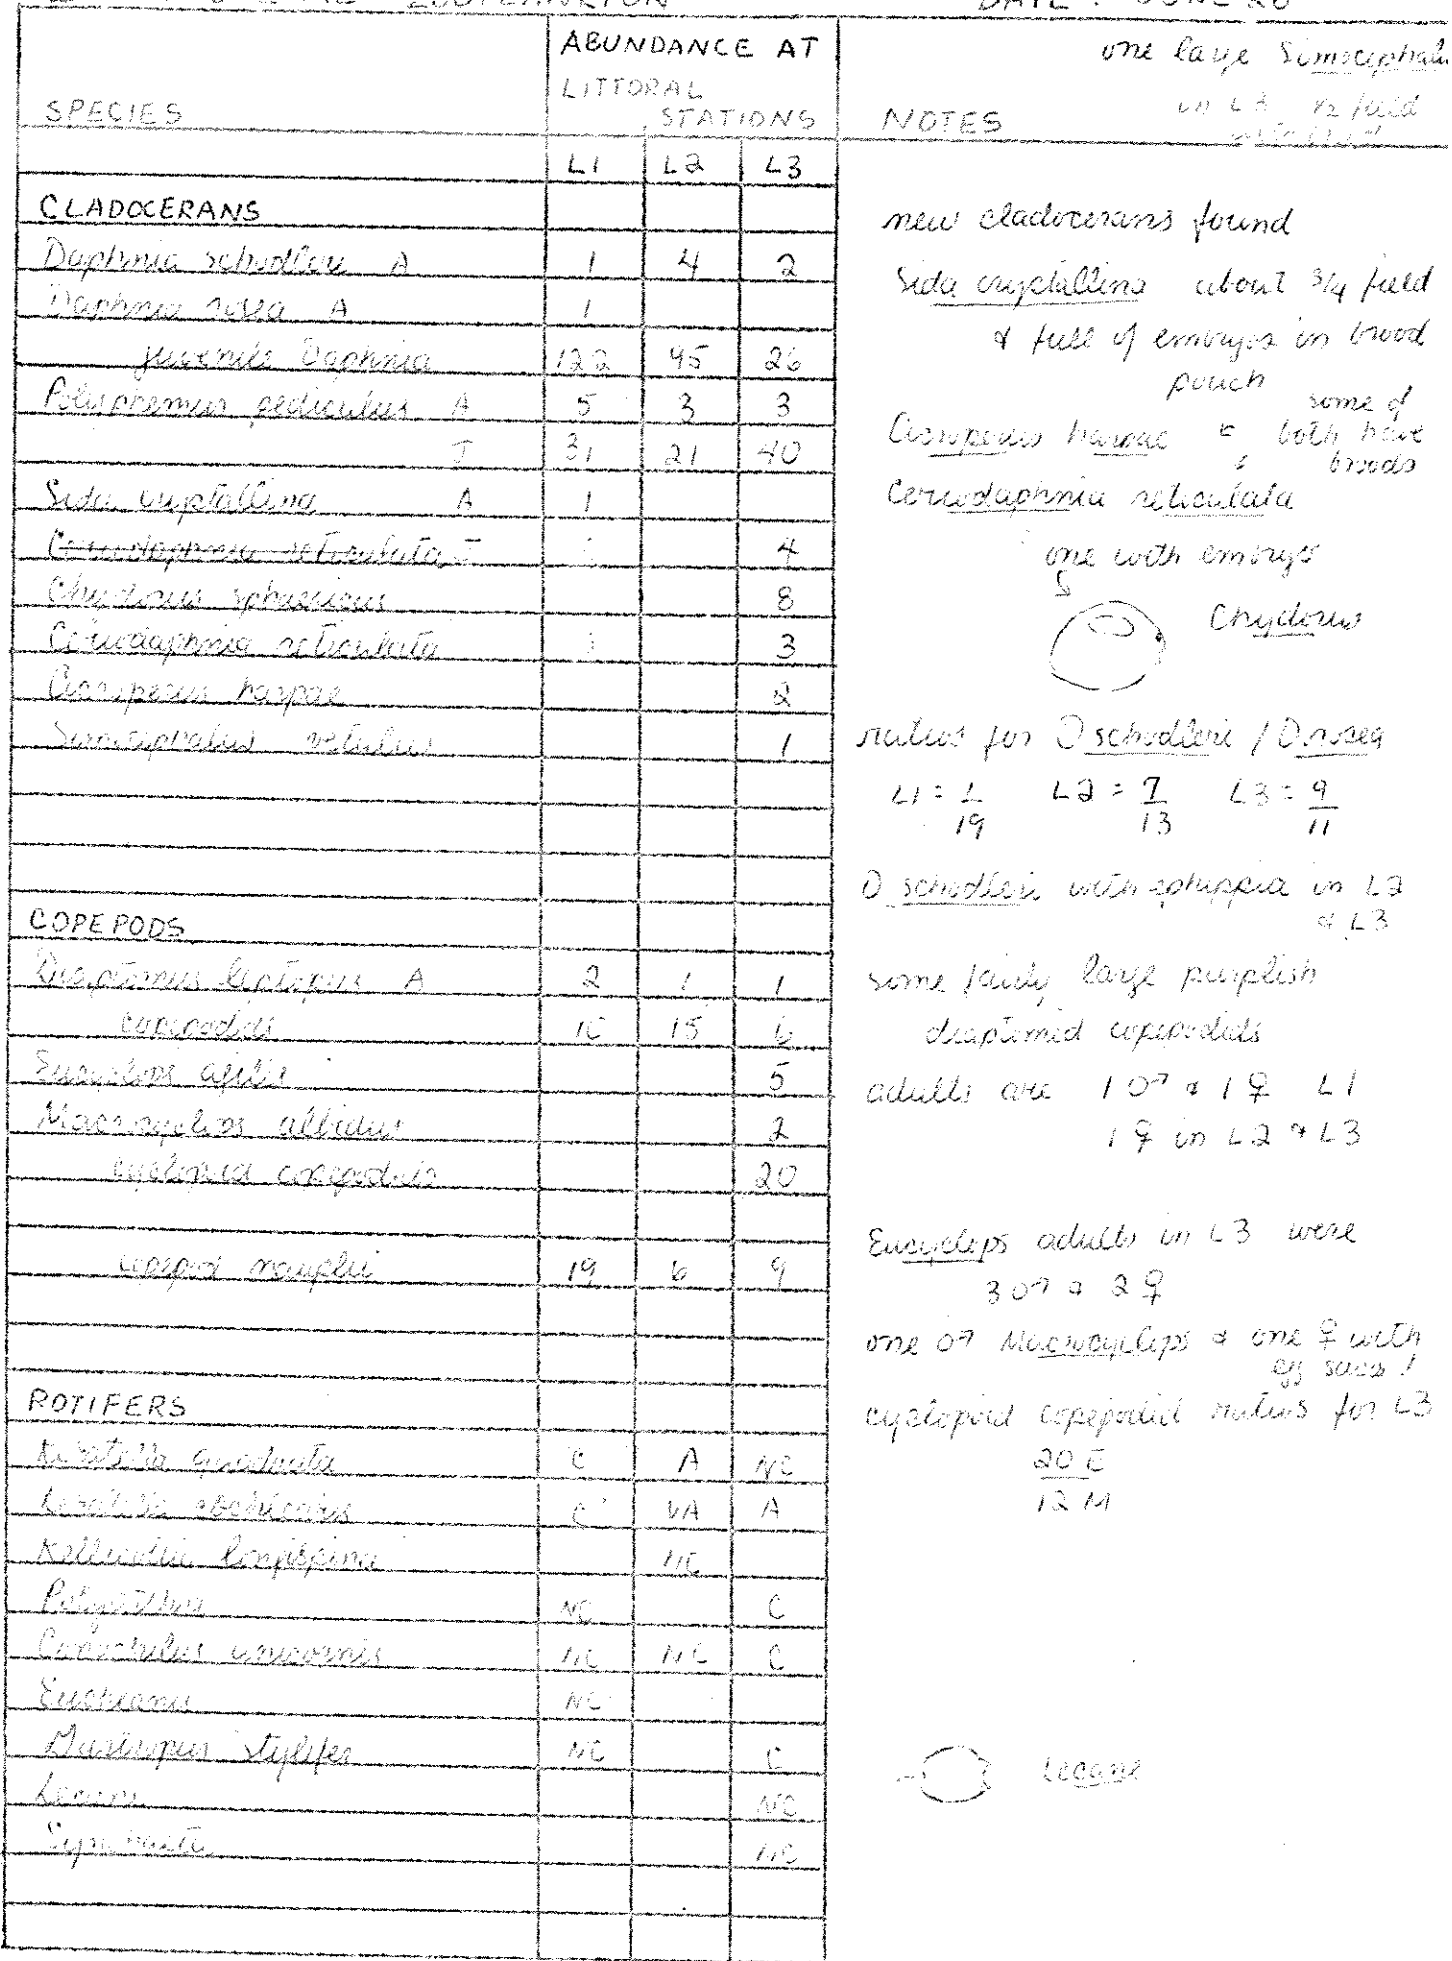 ZOOPLANKTON DATE : JUNE 20
SPECIES
ABUNDANCE AT
LITTORAL
STATIONS
NOTES
one large Simocephalus
in L3 1/2 field
L1 L2 L3
CLADOCERANS
Daphnia schodleri A 1 4 2
Daphnia rosea A 1
juvenile Daphnia 122 95 26
Polyphemus pediculus A 5 3 3
J 31 21 40
Sida crystallina A 1
Ceriodaphnia reticulata J 4
Chydorus sphaericus 8
Ceriodaphnia reticulata 3
Acroperus harpae 2
Simocephalus vetulus 1
COPEPODS
Diaptomus leptopus A 2 1 1
copepodids 10 15 6
Eucyclops agilis 5
Macrocyclops albidus 2
cyclopoid copepodids 20
copepod nauplii 19 6 9
ROTIFERS
Keratella quadrata C A NC
Keratella cochlearis C VA A
Kellicottia longispina NC
Polyarthra NC C
Conochilus unicornis NC NC C
Euchlanis NC
Gastropus stylifer NC C
Lecane NC
Synchaeta NC
new cladocerans found
Sida crystallina about 3/4 field
& full of embryos in brood
pouch
Acroperus harpae & some of
both have
broods
Ceriodaphnia reticulata
one with embryo
Chydorus
ratios for D schodleri / D. rosea
L1 = 1/19 L2 = 7/13 L3 = 9/11
D schodleri with ephippia in L2
& L3
some fairly large purplish
diaptomid copepodids
adults are 1 ♂ & 1 ♀ L1
1 ♀ in L2 & L3
Eucyclops adults in L3 were
3 ♂ & 2 ♀
one ♂ Macrocyclops & one ♀ with
egg sacs!
cyclopoid copepodid ratios for L3
20 E
12 M
Lecane